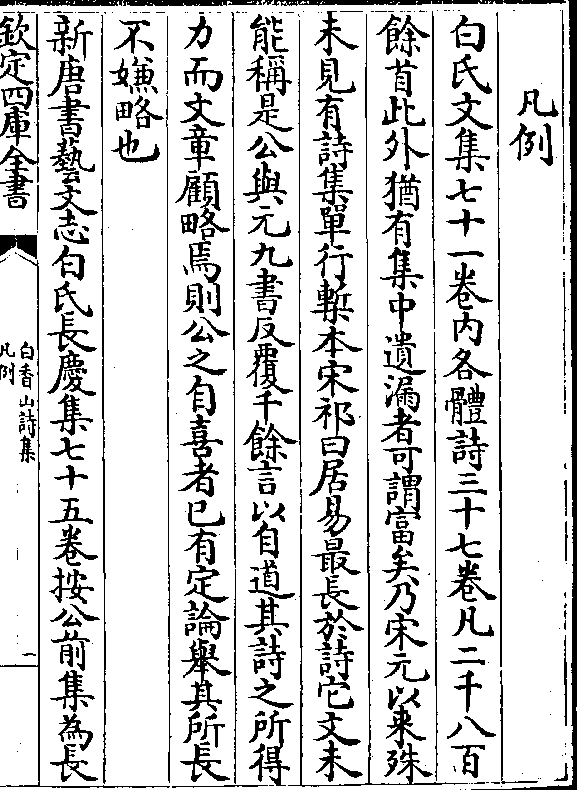 凡例
白氏文集七十一卷内各體詩三十七卷凡二千八百
餘首此外猶有集中遺漏者可謂富矣乃宋元以來殊
未見有詩集單行槧本宋祁曰居易最長於詩它文未
能稱是公與元九書反覆千餘言以自道其詩之所得
力而文章顧略焉則公之自喜者已有定論舉其所長
不嫌略也
新唐書藝文志白氏長慶集七十五卷按公前集為長
欽定四庫全書
白香山詩集
凡例
一